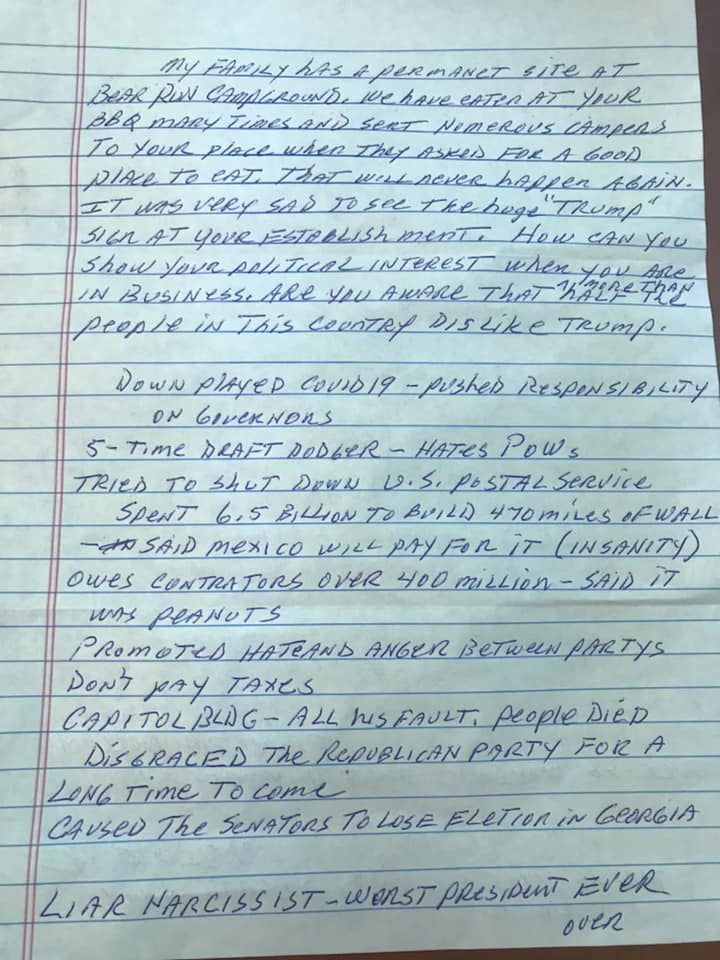 My FAMILY hAS A perMANET SITE AT
BEAR RUN CAMPGROUND. We have EATEN AT YOUR
BBQ MANY TIMES AND SENT NUMEROUS CAMPERS
To YOUR place when They ASKED FOR A GOOD
PlACE TO EAT. THAT WILL never hAppen AGAIN.
IT WAS very SAD TO see The huge "TRUMP"
SIGN AT YOUR ESTABLISHMENT. How CAN You
Show Your POLITICAL INTEREST when you ARE
IN BUSINESS. ARE YOU AWARE THAT MORE THAN HALF The
people in This COUNTRY DISLIKE TRUMP.
DOWN PlAYED COVID 19 - pushed RESPONSIBILITY
ON GOVERNORS
5-Time DRAFT DODGER - HATES POWs
TRIED TO SHUT DOWN U.S. POSTAL Service
SPENT 6.5 BILLION TO BUILD 470 miles OF WALL
- SAID MEXICO WILL PAY FOR IT (INSANITY)
OWES CONTRATORS OVER 400 million - SAID IT
WAS PEANUTS
PROMOTED HATE AND ANGER BETWEEN PARTYS
DON'T PAY TAXES
CAPITOL BLDG - ALL his FAULT. People DIED
DISGRACED The REPUBLICAN PARTY FOR A
LONG Time To come
CAUSED The SENATORS TO LOSE ELETION iN GEORGIA
LIAR NARCISSIST - WORST PRESIDENT EVER
OVER